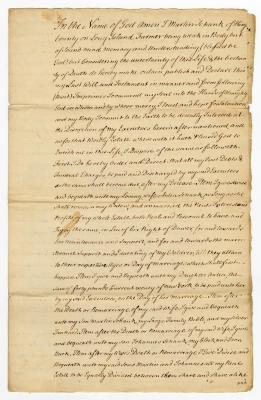 In the Name of God Amen I Martin Schenck of Kings
County on Long Island, Farmer being weak in Body but
of Sound mind, memory and Understanding blessed be
God but Considering the uncertainty of this Life & the Certain
ty of Death do hereby make ordain publish and Declare this
my Last Will and Testament in manner and form following
that is Imprimis I commend my Soul into the Hands of almighty
God
and my Body I commit to the Earth to be decently Interred at
the Discretion of my Executors herein after mentioned, and
as for that Worldly Estate wherewith it hath Pleased God to
Entrust me in this Life, I Dispose of the same as followeth
First, I Do hereby order and Direct that all my Just Debts &
Funeral Charges be paid and Discharged by my said Executors
as the same shall become due after my Decease Item I give devise
and bequeath unto my
shall remain my Widow and unmarried, the Rents Issues and
Profits of my whole Estate both Real and Personal to have and
Enjoy the same, in lieu of her Right of Dower for and towards
her maintenance and Support, and for and towards the main-
tenance Support and Educating of my Children, till they attain
to their respective Ages or Day of marriage, which shall first
happen, Item I give and bequeath unto my Daughter
sum of forty pounds Current money of New York to be paid unto her
by my said Executors, on the Day of her Marriage. Item after
the Death or Remarriage of my said wife I give and bequeath
unto my Son Martin Schenck, my large Family Bible, and my silver
Tankard. Item after the Death or Remarriage of my said wife I give
and bequeath unto my Son Johannes Schenck, my
Item, after my wifes Death or Remarriage I Give Devise, and
Bequeath unto my said sons Martin and Johannes all my Real
Estate to be Equally Divided between them share and share alike
and